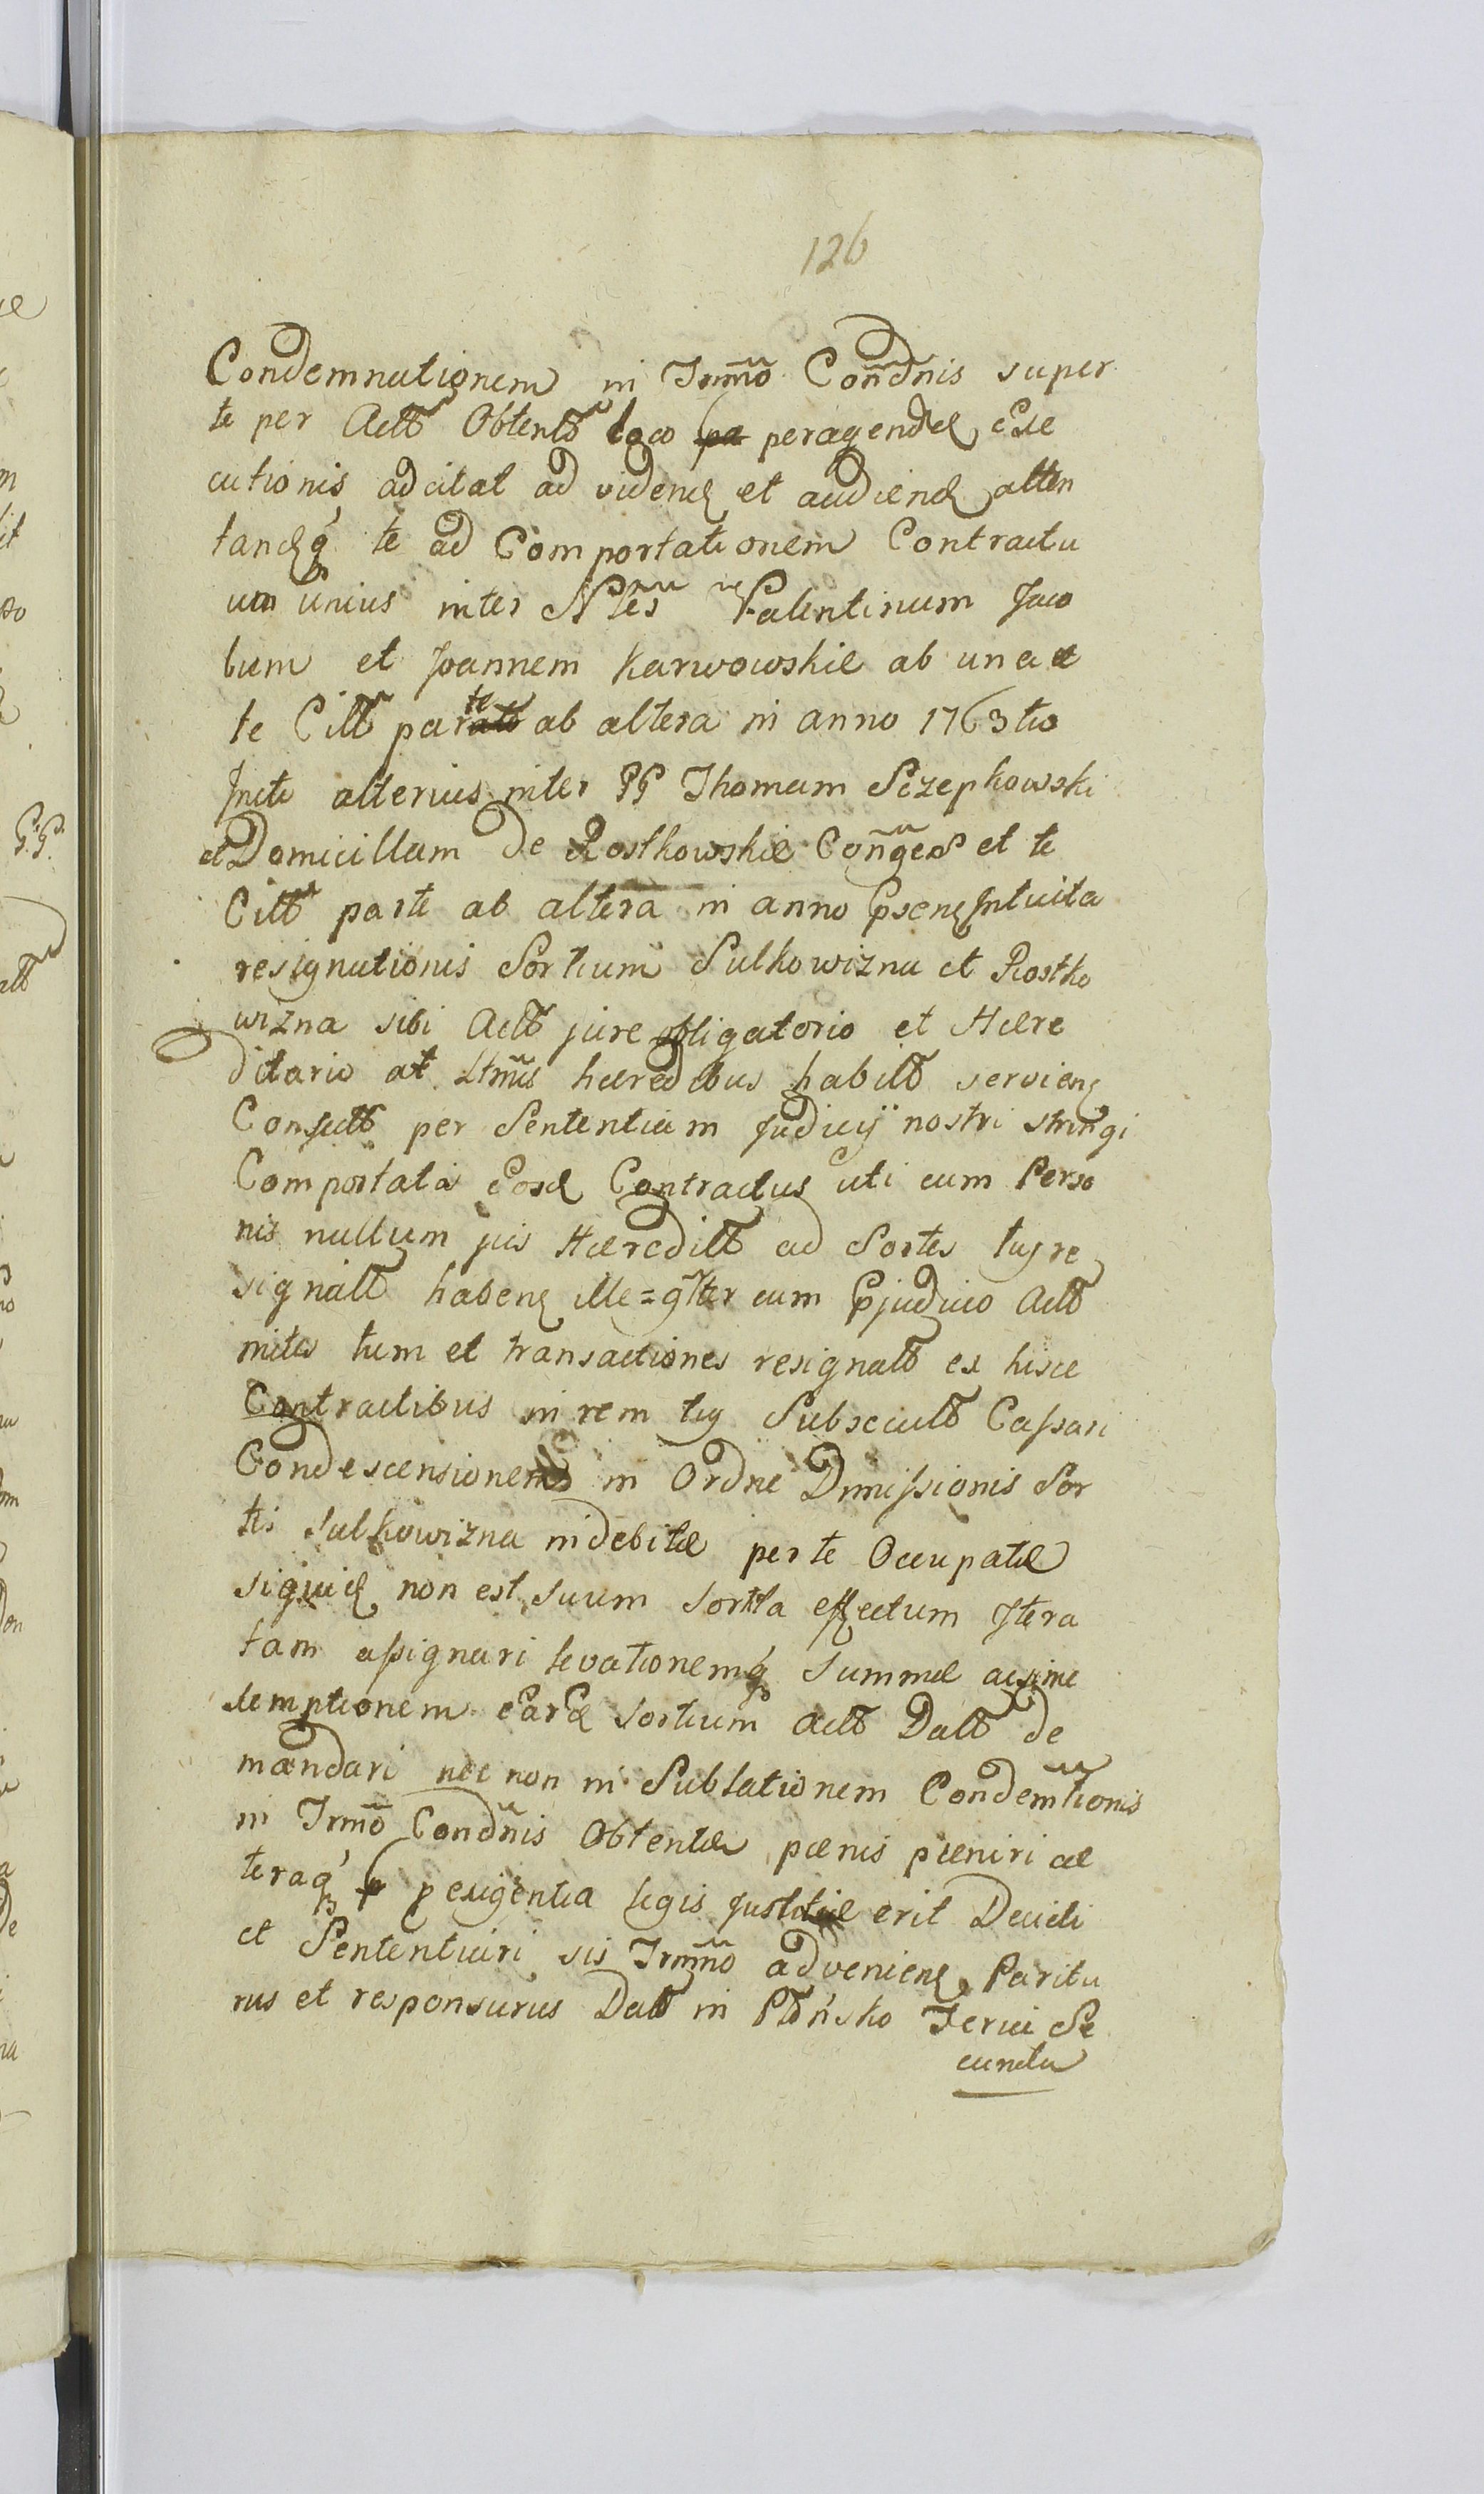 126
Condemnationem in Trmno Condnis super
te per Actt Obtentt loco peragendæ Exe
cutionis adcitat ad videnđ et audienđ atten
tandq te ad Comportationem Contractu
um unius inter Nles Valentinum Jaco
bum et Joannem Karwowskie ab una e
te Citt parte ab altera in anno 1763tio
alterius inter PP Thomam Szczepkowski
et Domicillam de Rostkowskie Conges et te
Citt parte ab altera in anno Intuitu
resignationis Sortium Sulkowizna et Rostko
wizna sibi Actt jure obligatorio et Hære
ditario at hæredibus habitt servienđ
Confectt per Sententiam Judicij nostri stringi
Comportatos Eosđ Contractus uti cum Perso
nis nullum jus Hæreditt ad Sortes re
signatt habenđ ille=gtter cum Pjudicio Actt
initos tum et transactiones resignatt ex hisce
Contractibus in rem Subsecutt Cassari
Condescensionem in Ordne Dimissionis Sor
tis Sulkowizna indebite per te Occupatæ
siquiđ non est suum sortita effectum Itera
tam assignari levationemq Summæ
emptionem earđ sortium actt Datt de
mandari nec non in Sublationem Condemtionis
in Trmno Condnis Obtentæ pænis pæniri cæ
teraq p exigentia legis Justitiæ erit Decidi
et Sententiari sis Trmno advenienđ Paritu
rus et responsurus Datt in Płońsko Feria Se
cunda